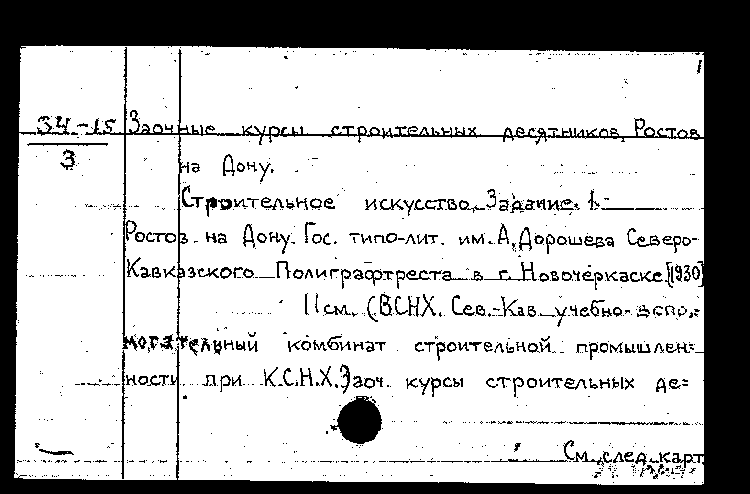 1
34-15
3
Заочные курсы строительных десятников, Ростов
на Дону.
Строительное искусство. Задание. 1.
Ростов. на Дону. Гос. типо-лит. им. А. Дорошева Северо-
Кавказского Полиграфтреста в г. Новочеркаске. [1930]
11 см. (ВСНХ. Сев.-Кав. учебно-вспо-
могательный комбинат строительной промышлен=
ности при К.С.Н.Х. Заоч. курсы строительных де=
См. след. карт